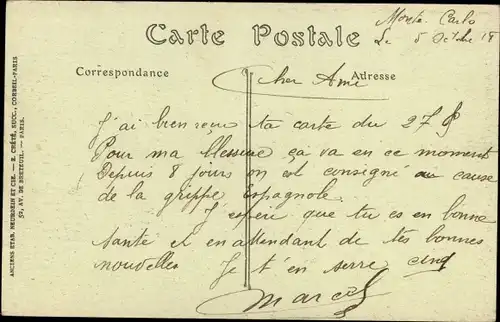 Monte Carlo
Le 5 Octobre 18
Carte Postale
Correspondance
Adresse
Cher Ami
J'ai bien reçu ta carte du 27
Pour ma blessure ça va en ce moment
Depuis 8 jours on est consigné au cause
de la grippe Espagnole.
J'espère que tu es en bonne
santé et en attendant de tes bonnes
nouvelles Je t'en serre cinq
Marcel
ANCIENS ETAB. NEURDEIN ET CIE. — E. CRÉTÉ, SUCC., CORBEIL-PARIS
52, AV. DE BRETEUIL. — PARIS.